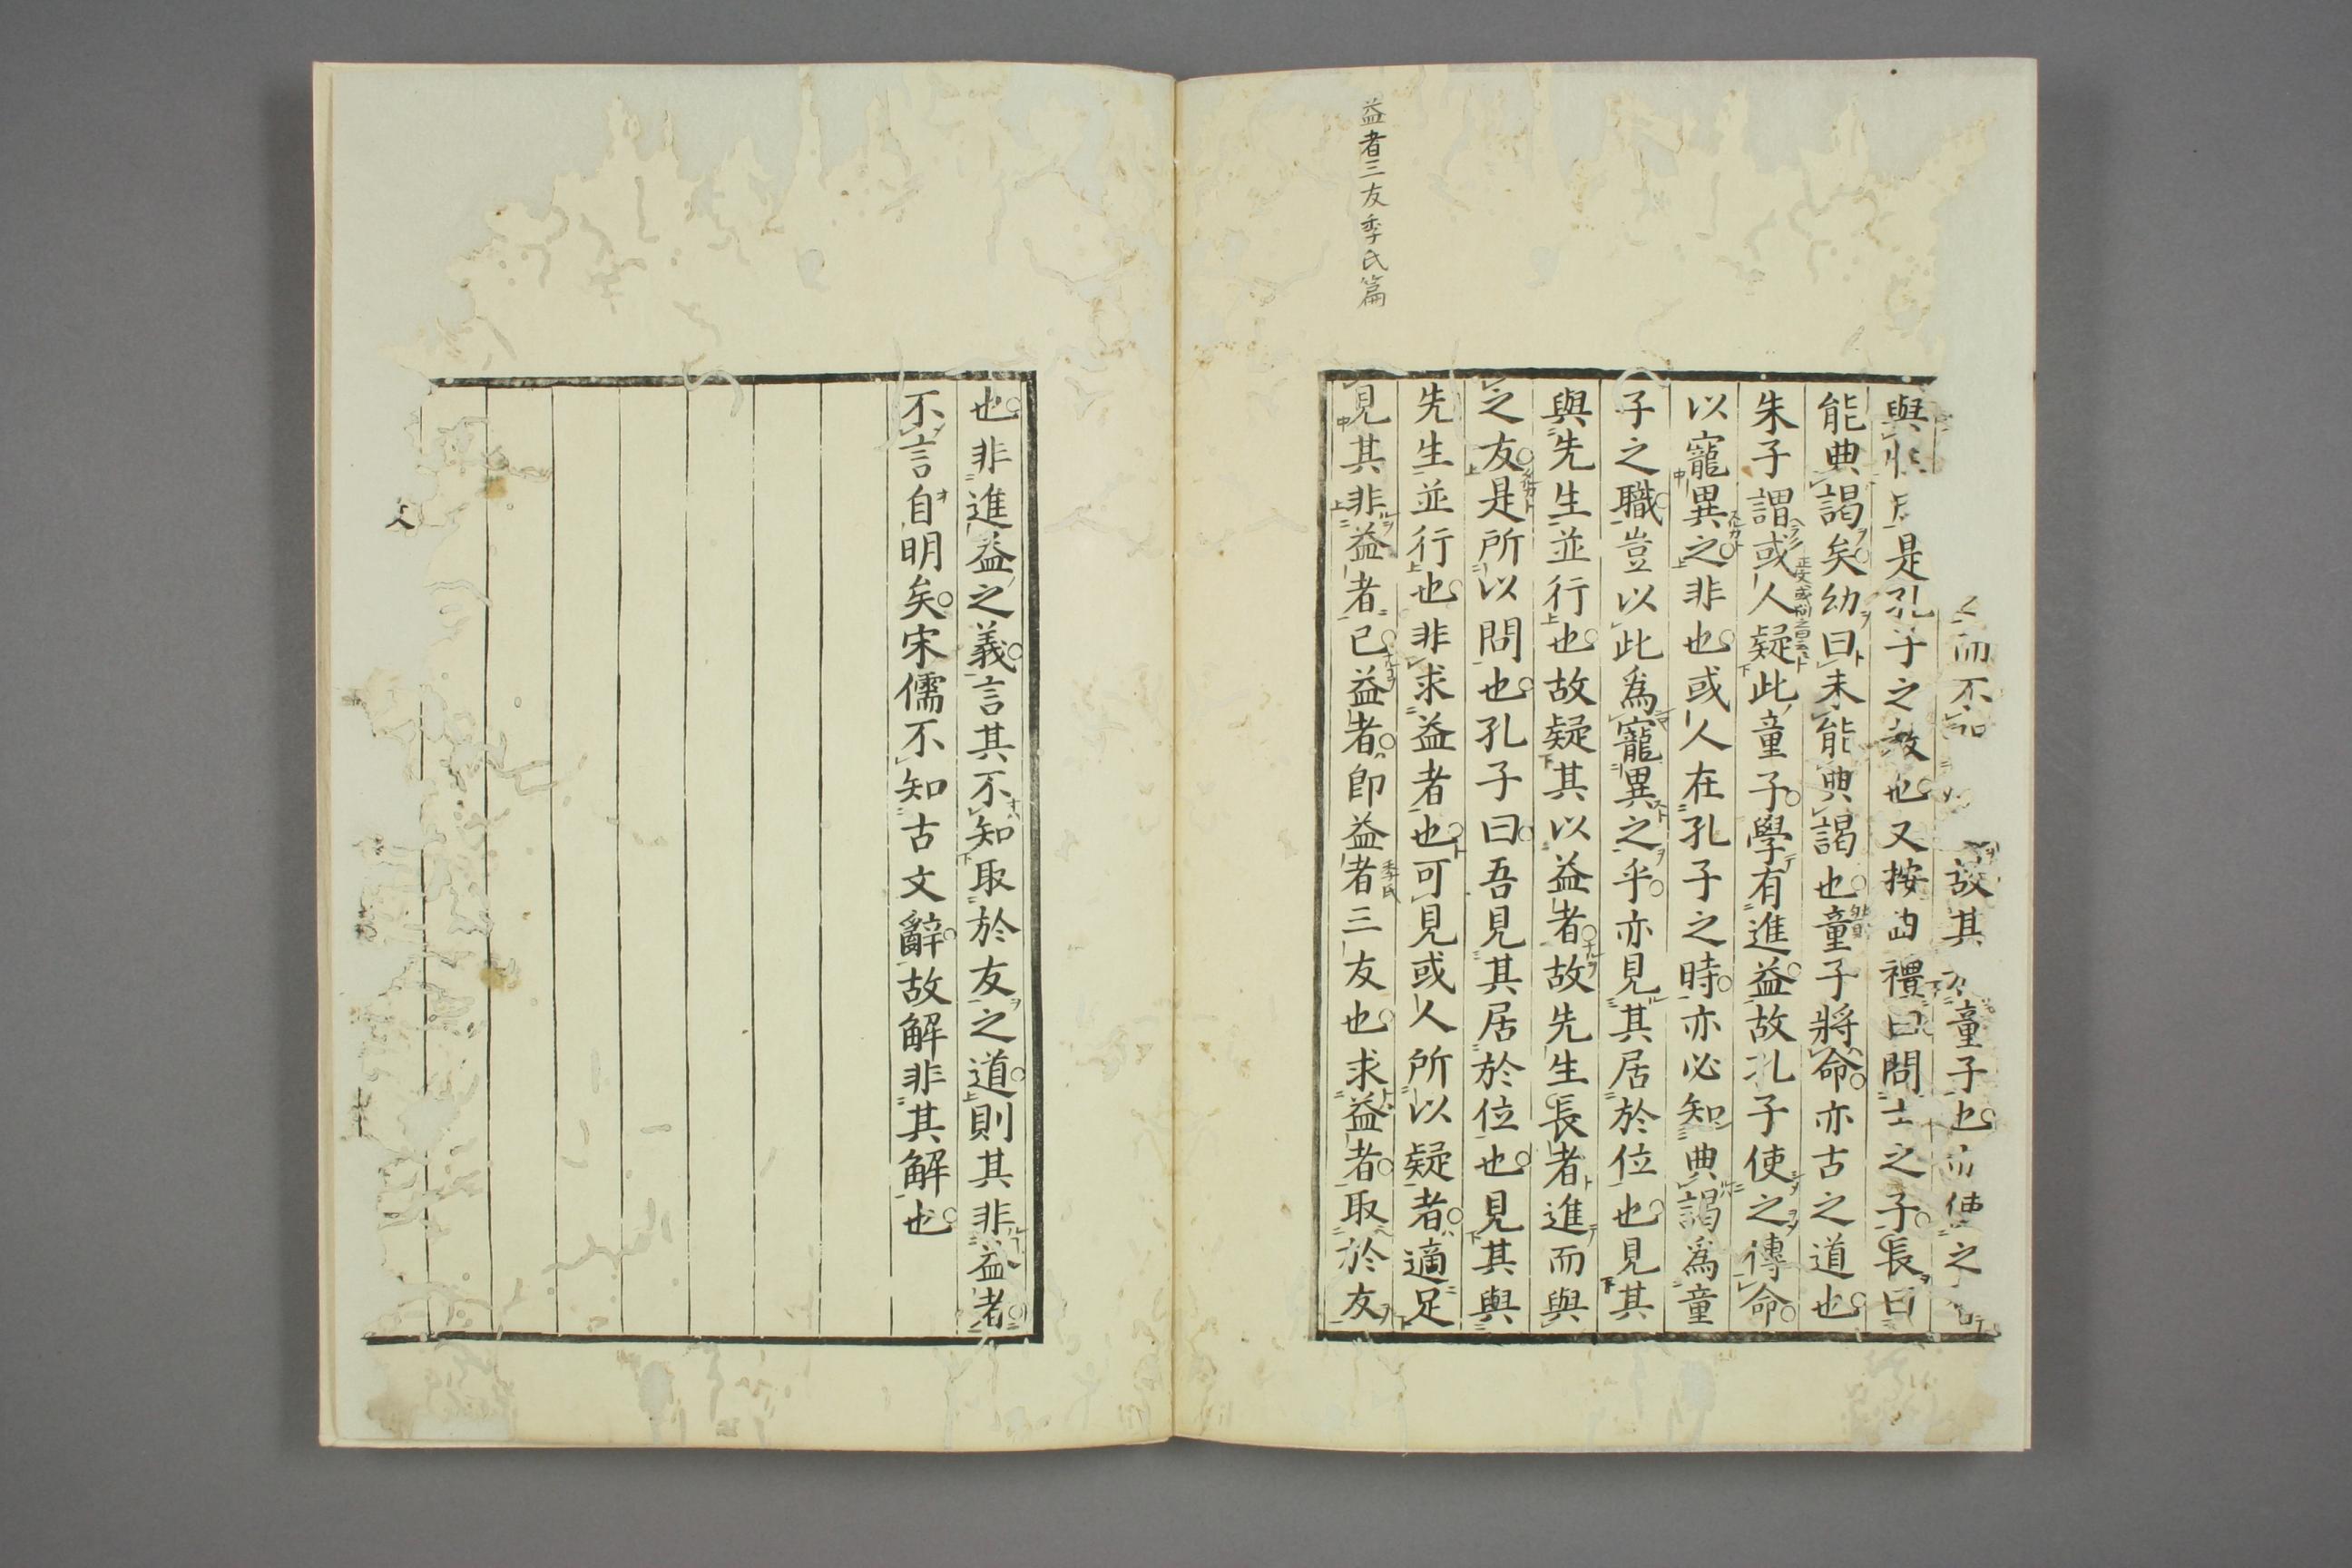 益者三友季氏篇
而不知故其童子也而使之
與是孔子之教也又按曲禮曰問士之子長曰
能典謁矣幼曰未能典謁也童子將命亦古之道也
朱子謂或人疑此童子學有進益故孔子使之傳命
以寵異之非也或人在孔子之時亦必知典謁爲童
子之職豈以此爲寵異之乎亦見其居於位也見其
與先生並行也故疑其以益者故先生長者進而與
之友是所以問也孔子曰吾見其居於位也見其與
先生並行也非求益者也可見或人所以疑者適足
見其非益者已益者即益者三友也求益者取於友
也非進益之義言其不知取於友之道則其非益者
不言自明矣宋儒不知古文辭故解非其解也